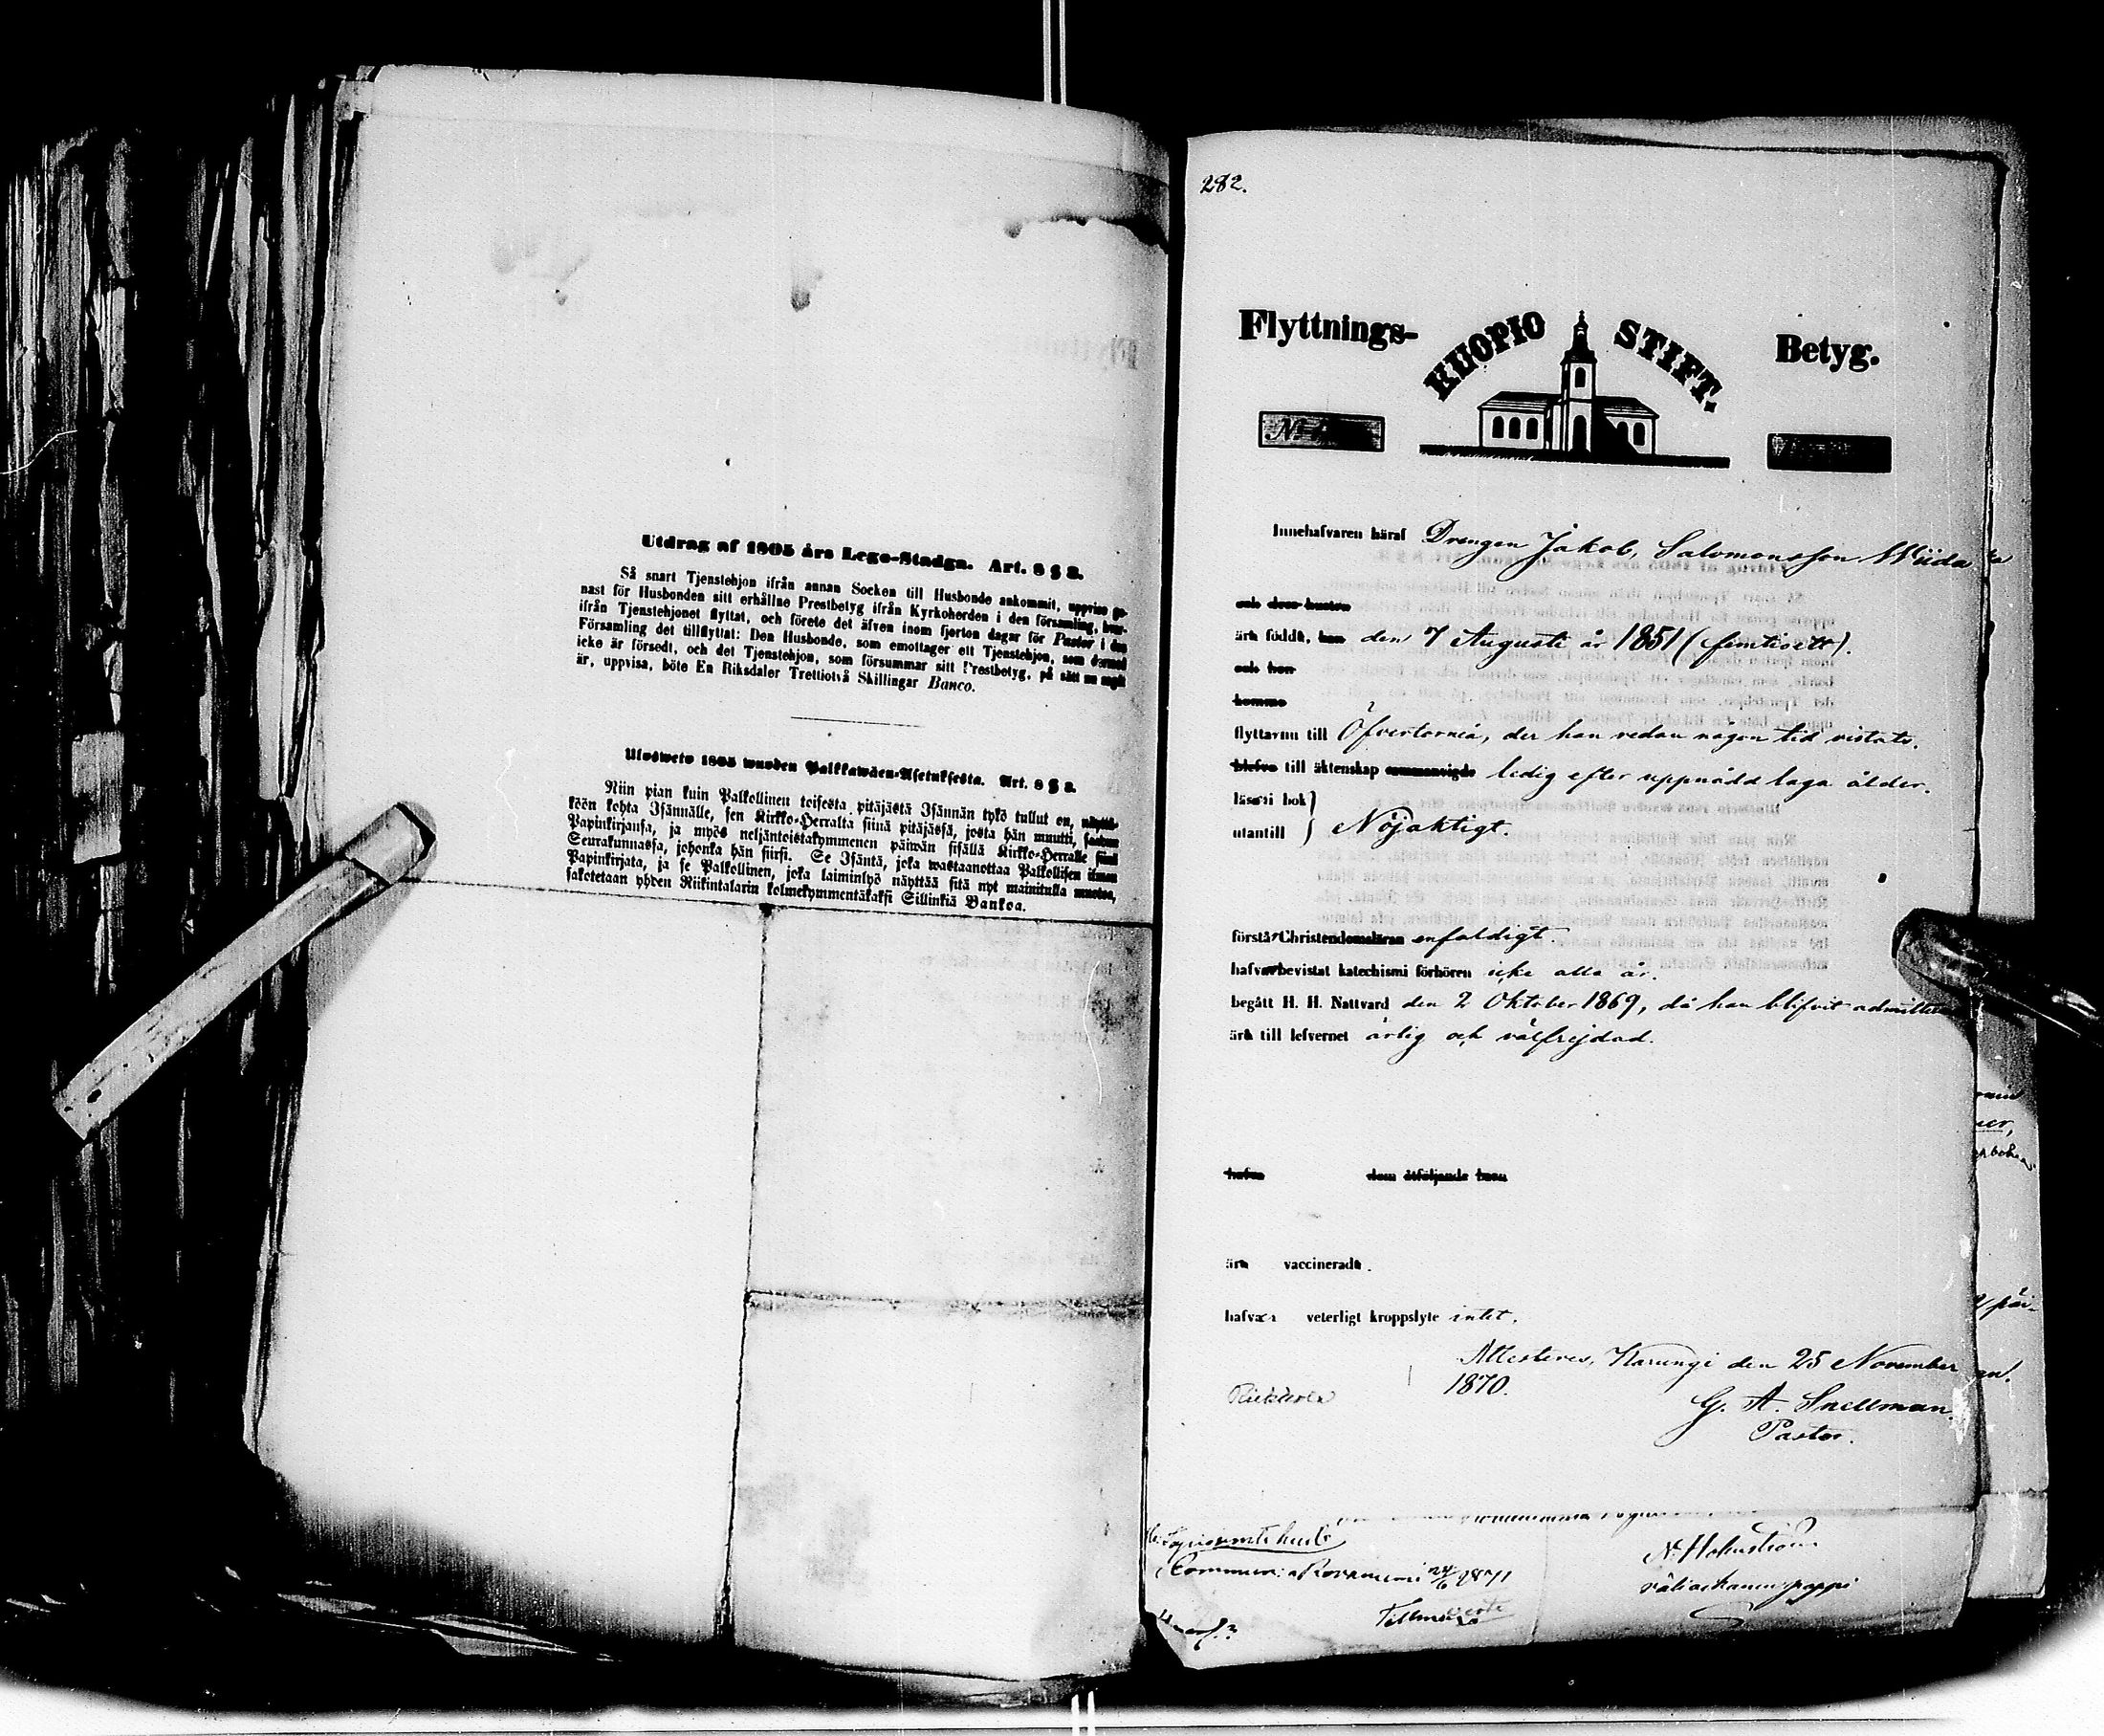 Utdrag af 1805 års Lego-Stadga. Art. 8 § 3.
Så snart Tjenstehjon ifrån annan Socken till Husbonde ankommit, uppvise ge-
nast för Husbonden sitt erhållne Prestbetyg ifrån Kyrkoherden i den församling, hvar-
ifrån Tjenstehjonet flyttat, och förete det äfven inom fjorton dagar för Pastor i den
Församling det tillflyttat: Den Husbonde, som emottager ett Tjenstehjon, som dermed
icke är försedt, och det Tjenstehjon, som försummar sitt Prestbetyg, på sätt nu sagdt
är, uppvisa, böte En Riksdaler Trettiotvå Skillingar Banco.
Ulosweto 1805 wuoden Palkkawäen-Asetuksesta. Art. 8 § 3.
Niin pian kuin Palkollinen toisesta pitäjästä Isännän tykö tullut on, näyttä-
köön kohta Isännälle, sen Kirkko-Herralta siinä pitäjässä, josta hän muutti, saadun
Papinkirjansa, ja myös neljäntoistakymmenen päiwän sisällä Kirkko-Herralle siinä
Seurakunnassa, johonka hän siirsi. Se Isäntä, joka wastaanottaa Palkollisen ilman
Papinkirjata, ja se Palkollinen, joka laiminlyö näyttää sitä nyt mainitulla muotoa,
sakotetaan yhden Riikintalarin kolmekymmentäkaksi Sillinkiä Bankoa.
282.
Flyttnings- KUOPIO STIFT. Betyg.
No
Innehafvaren häraf Drengen Jakob, Salomonsson Wiida
och dess hustru
äro födda, han den 7 Augusti år 1851 (femtioett).
och hon
komme
flyttavnn till Öfvertorneå, der han redan någon tid vistats.
blefvo till äktenskap sammanvigde ledig efter uppnådd laga ålder.
läsa i bok }
utantill } Nöjaktigt.
förstår Christendomsläran enfaldigt.
hafva bevistat katechismi förhören icke alla år.
begått H. H. Nattvard den 2 Oktober 1869, då han blifvit admitterad
äro till lefvernet ärlig och välfrejdad.
hafva dem åtföljande barn
äro vaccinerade.
hafva veterligt kroppslyte intet.
Attesteres, Karungi den 25 November
1870.
G. A. Snellman.
Pastor.
N. Holmström
väliaikanen pappi
Rovaniemi 24/6 1871